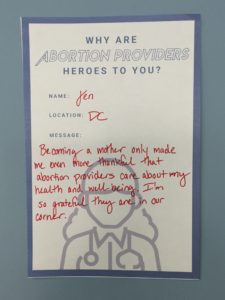 WHY ARE
ABORTION PROVIDERS
HEROES TO YOU?
NAME: Jen
LOCATION: DC
MESSAGE:
Becoming a mother only made
me even more thankful that
abortion providers care about my
health and well-being. I'm
so grateful they are in our
corner.